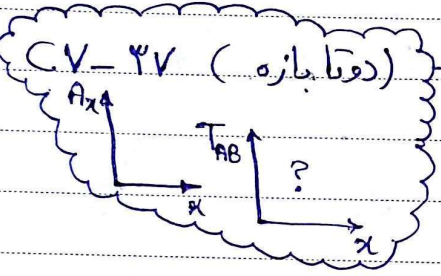 C۷ - ۳۷ (دوتا بازه)
Ax
x
TAB
?
x